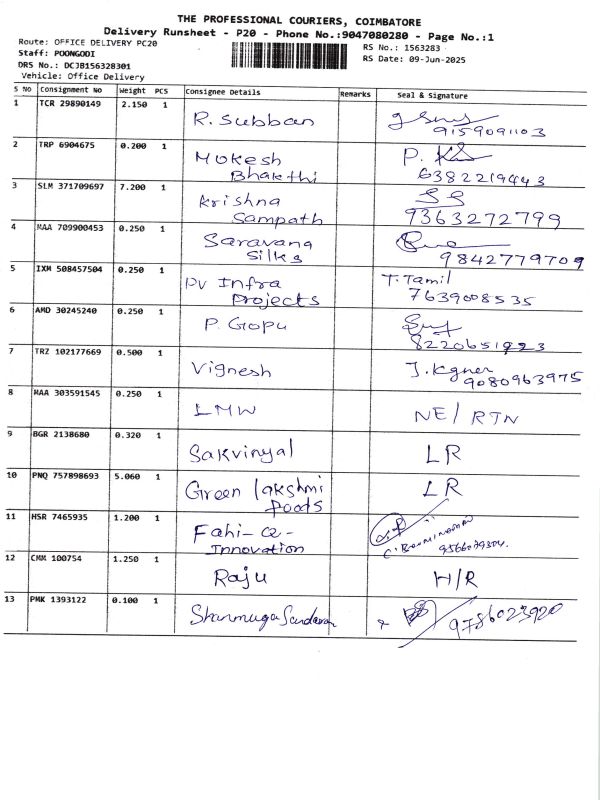 THE PROFESSIONAL COURIERS, COIMBATORE
Delivery Runsheet - P20 - Phone No.:9047080280 - Page No.:1
Route: OFFICE DELIVERY PC20
RS No.: 1563283
Staff: POONGODI
RS Date: 09-Jun-2025
DRS No.: DCJB156328301
Vehicle: Office Delivery
S No Consignment No Weight PCS Consignee Details Remarks Seal & Signature
1 TCR 29890149 2.150 1 R. Subban
9159091103
2 TRP 6904675 0.200 1 Mokesh P.
Bhakthi 6382219443
3 SLM 371709697 7.200 1 Krishna
Sampath 9363272799
4 MAA 709900453 0.250 1 Saravana
Silks 9842779709
5 IXM 508457504 0.250 1 PV Infra T. Tamil
Projects 7639008535
6 AMD 30245240 0.250 1 P. Gopu
7 TRZ 102177669 0.500 1 Vignesh
9080963975
8 MAA 303591545 0.250 1 LMW NE/RTN
9 BGR 2138680 0.320 1 Sakvinyal LR
10 PNQ 757898693 5.060 1 Green lakshmi LR
Foods
11 HSR 7465935 1.200 1 Fahi-ce-
Innovation 9566079304.
12 CMM 100754 1.250 1 Raju H/R
13 PMK 1393122 0.100 1 9786023920